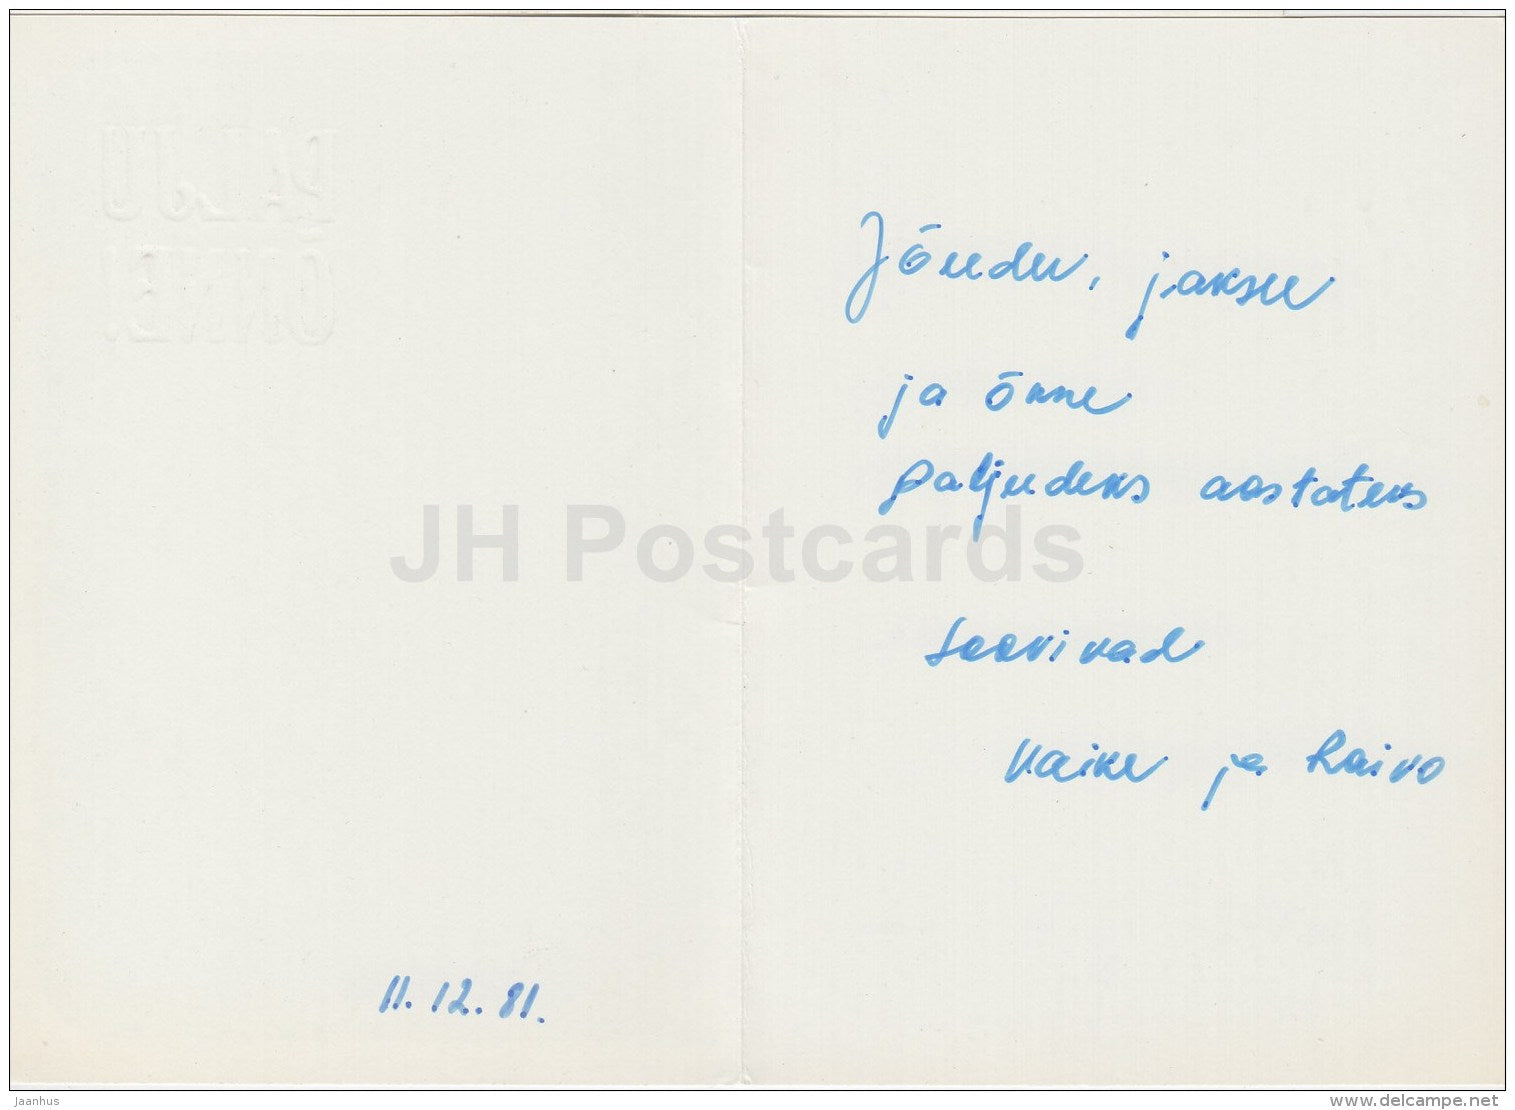 PALJU
ÕNNE!
Jõudu, jaksu
ja õnne
paljudeks aastateks
soovivad
Vaike ja Raivo
11.12.81.
JH Postcards
Jaanhus
www.delcampe.net